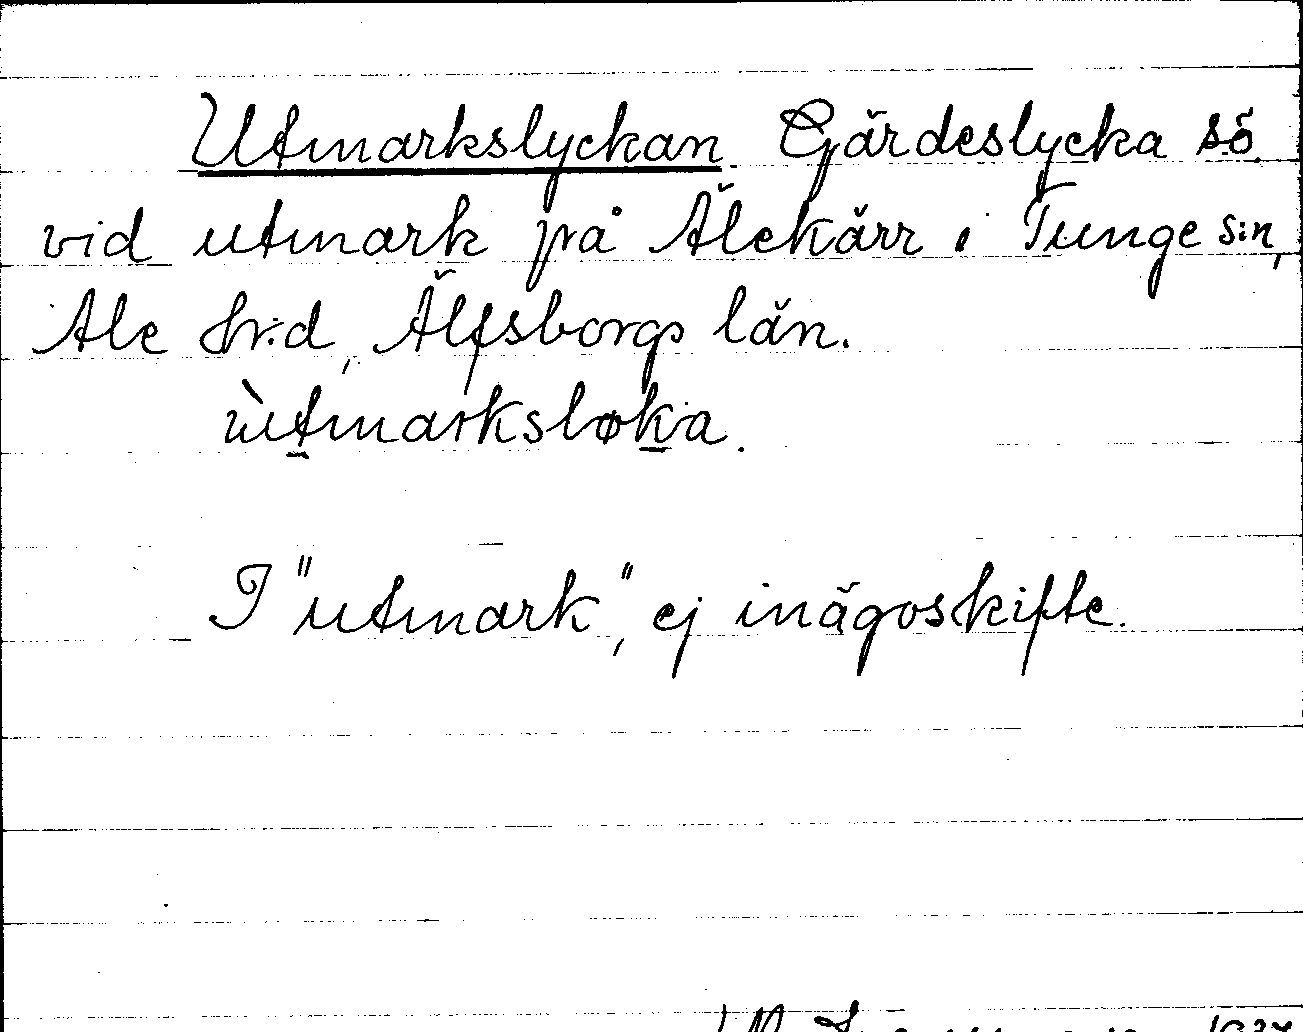 Utmarkslyckan. Gärdeslycka sö
vid utmark på Älekärr i Tunge s:n,
Ale hr:d, Älfsborgs län.
ùtmarksløka.
I "utmark", ej inägoskifte.